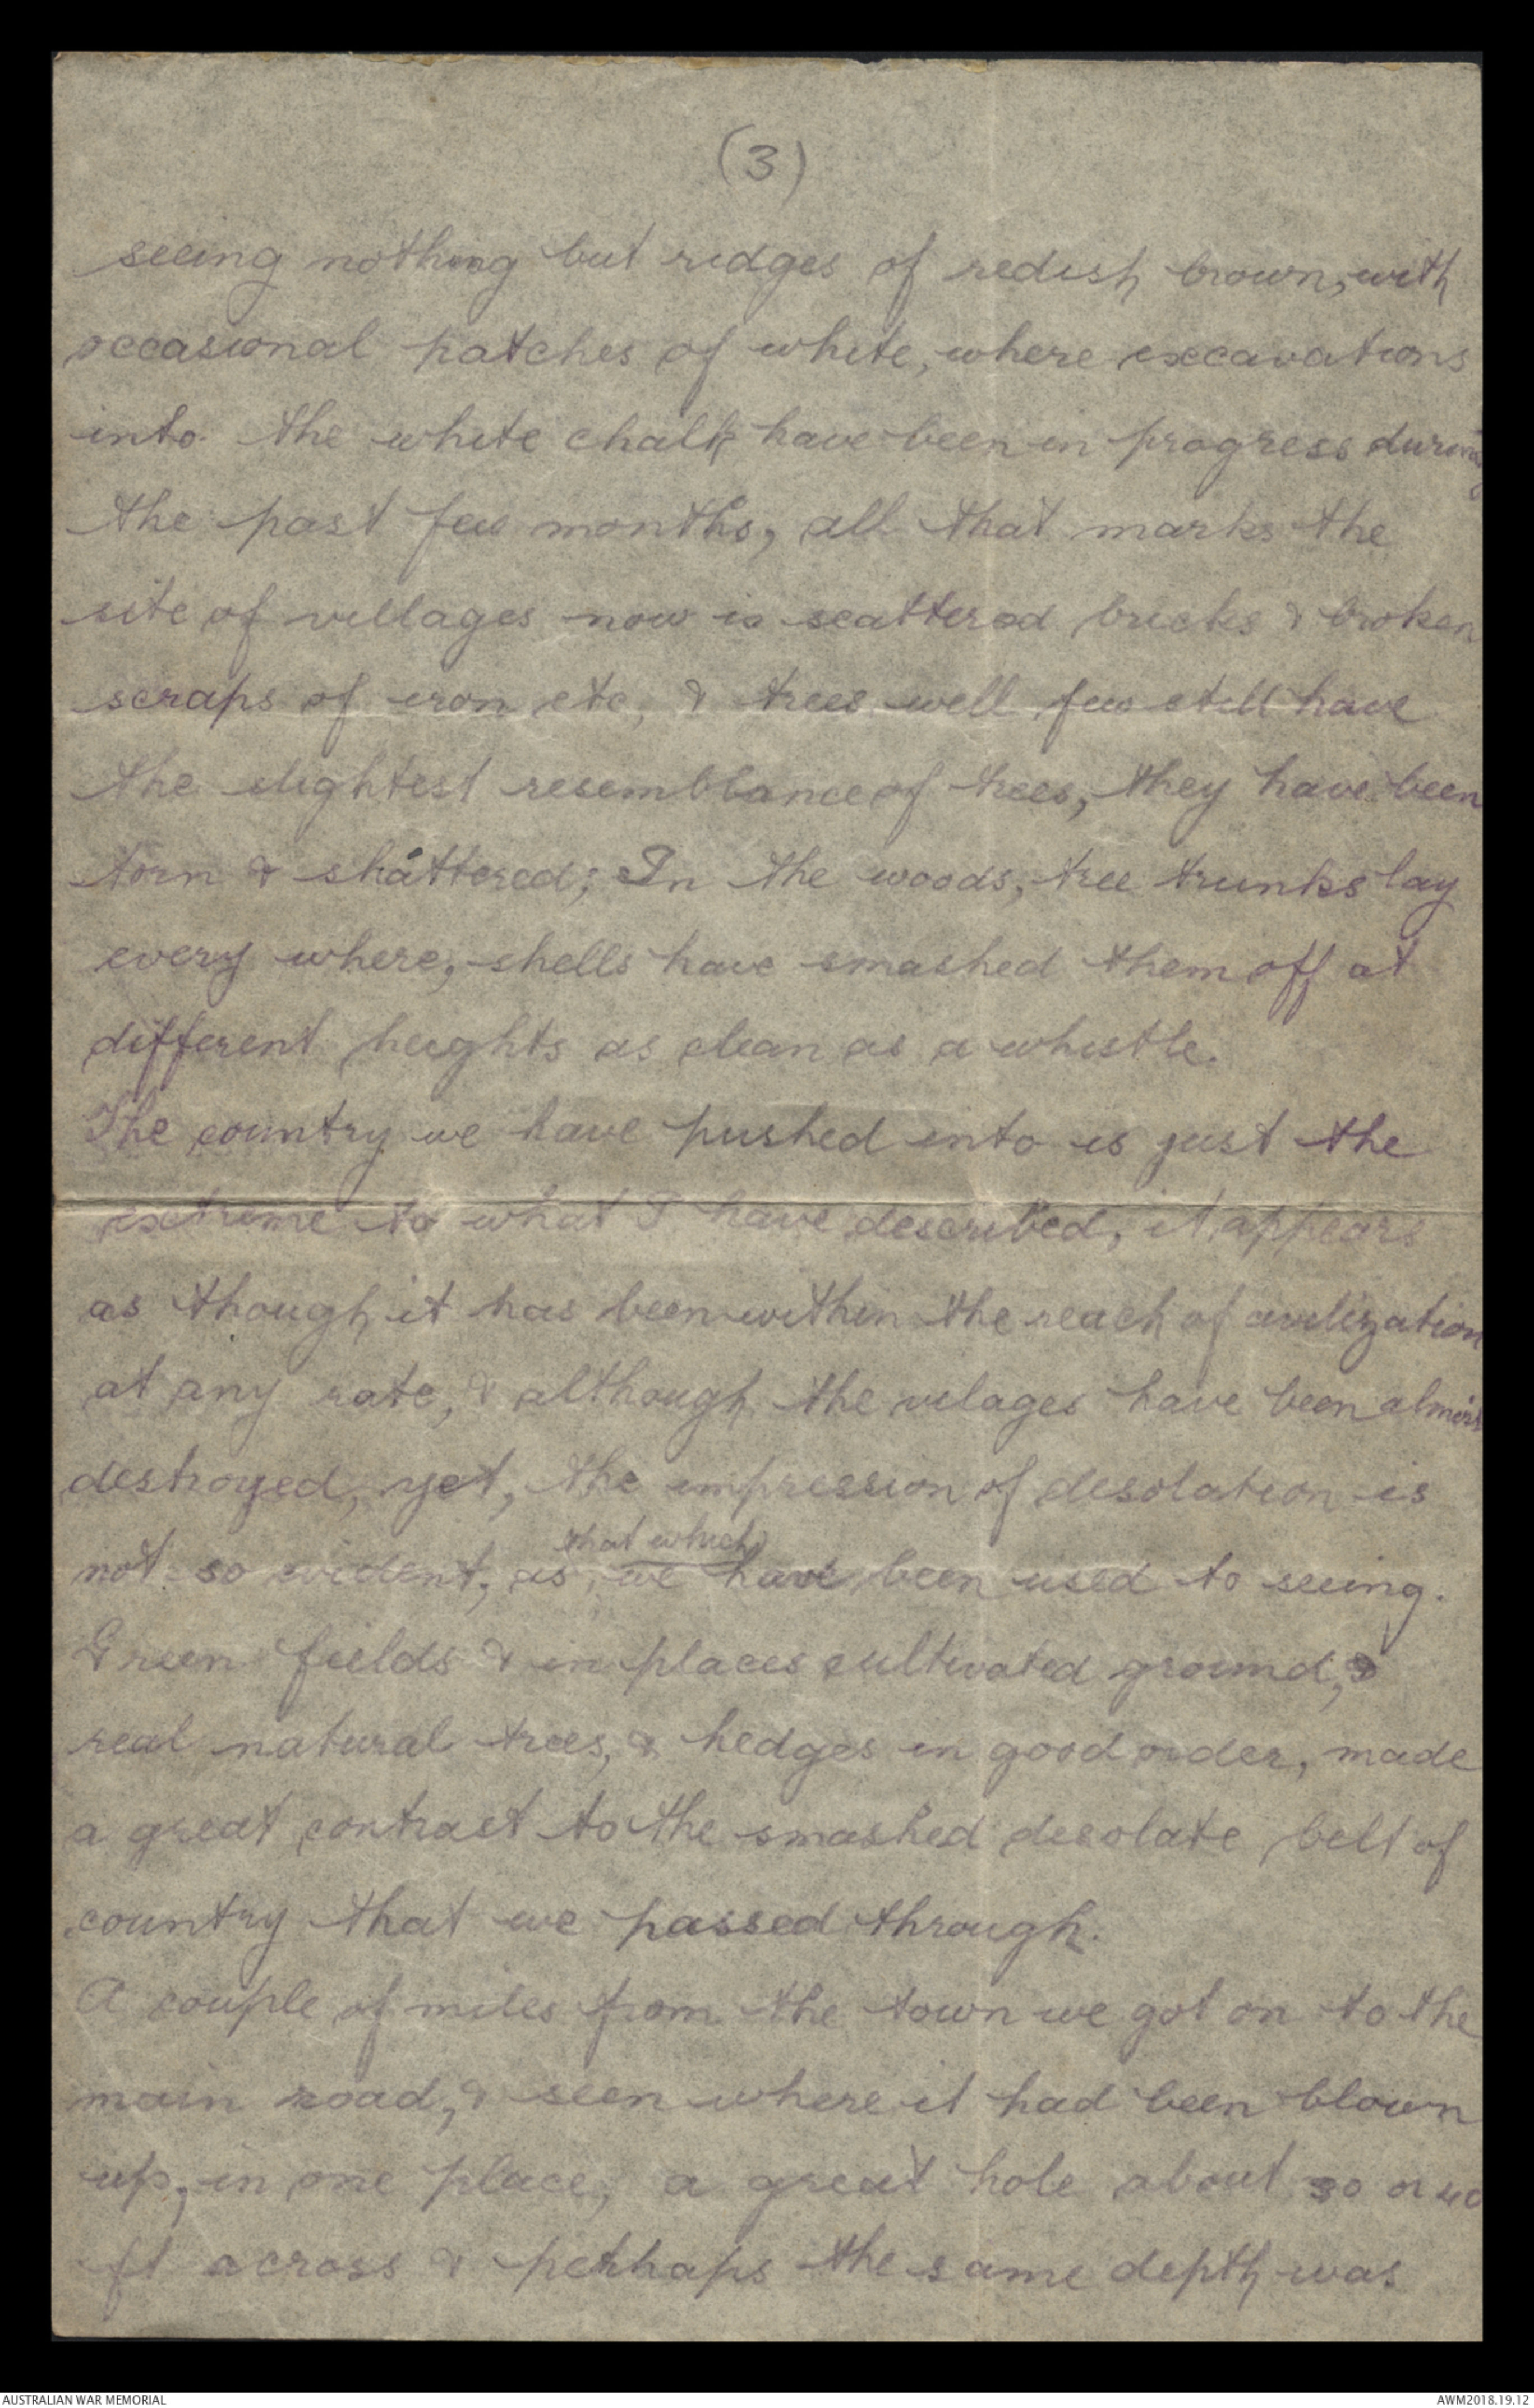 (3)
seeing nothing but ridges of redish brown, with
occasional patches of white, where excavations
into the white chalk have been in progress during
the past few months, all that marks the
site of villages now is scattered bricks & broken
scraps of iron etc, & trees well few still have
the slightest resemblance of trees, they have been
torn & shattered; In the woods, tree trunks lay
every where, shells have smashed them off at
different heights as clean as a whistle.
The country we have pushed into is just the
extreme to what I have described, it appears
as though it has been within the reach of civilization
at any rate, & although the vilages have been almost
destroyed, yet, the impression of desolation is
that which
not so evident, as, we have been used to seeing.
Green fields & in places cultivated ground, &
real natural trees, & hedges in good order, made
a great contrast to the smashed desolate belt of
country that we passed through.
A couple of miles from the town we got on to the
main road, & seen where it had been blown
up, in one place, a great hole about 30 or 40
ft across & perhaps the same depth was
AUSTRALIAN WAR MEMORIAL
AWM2018.19.12